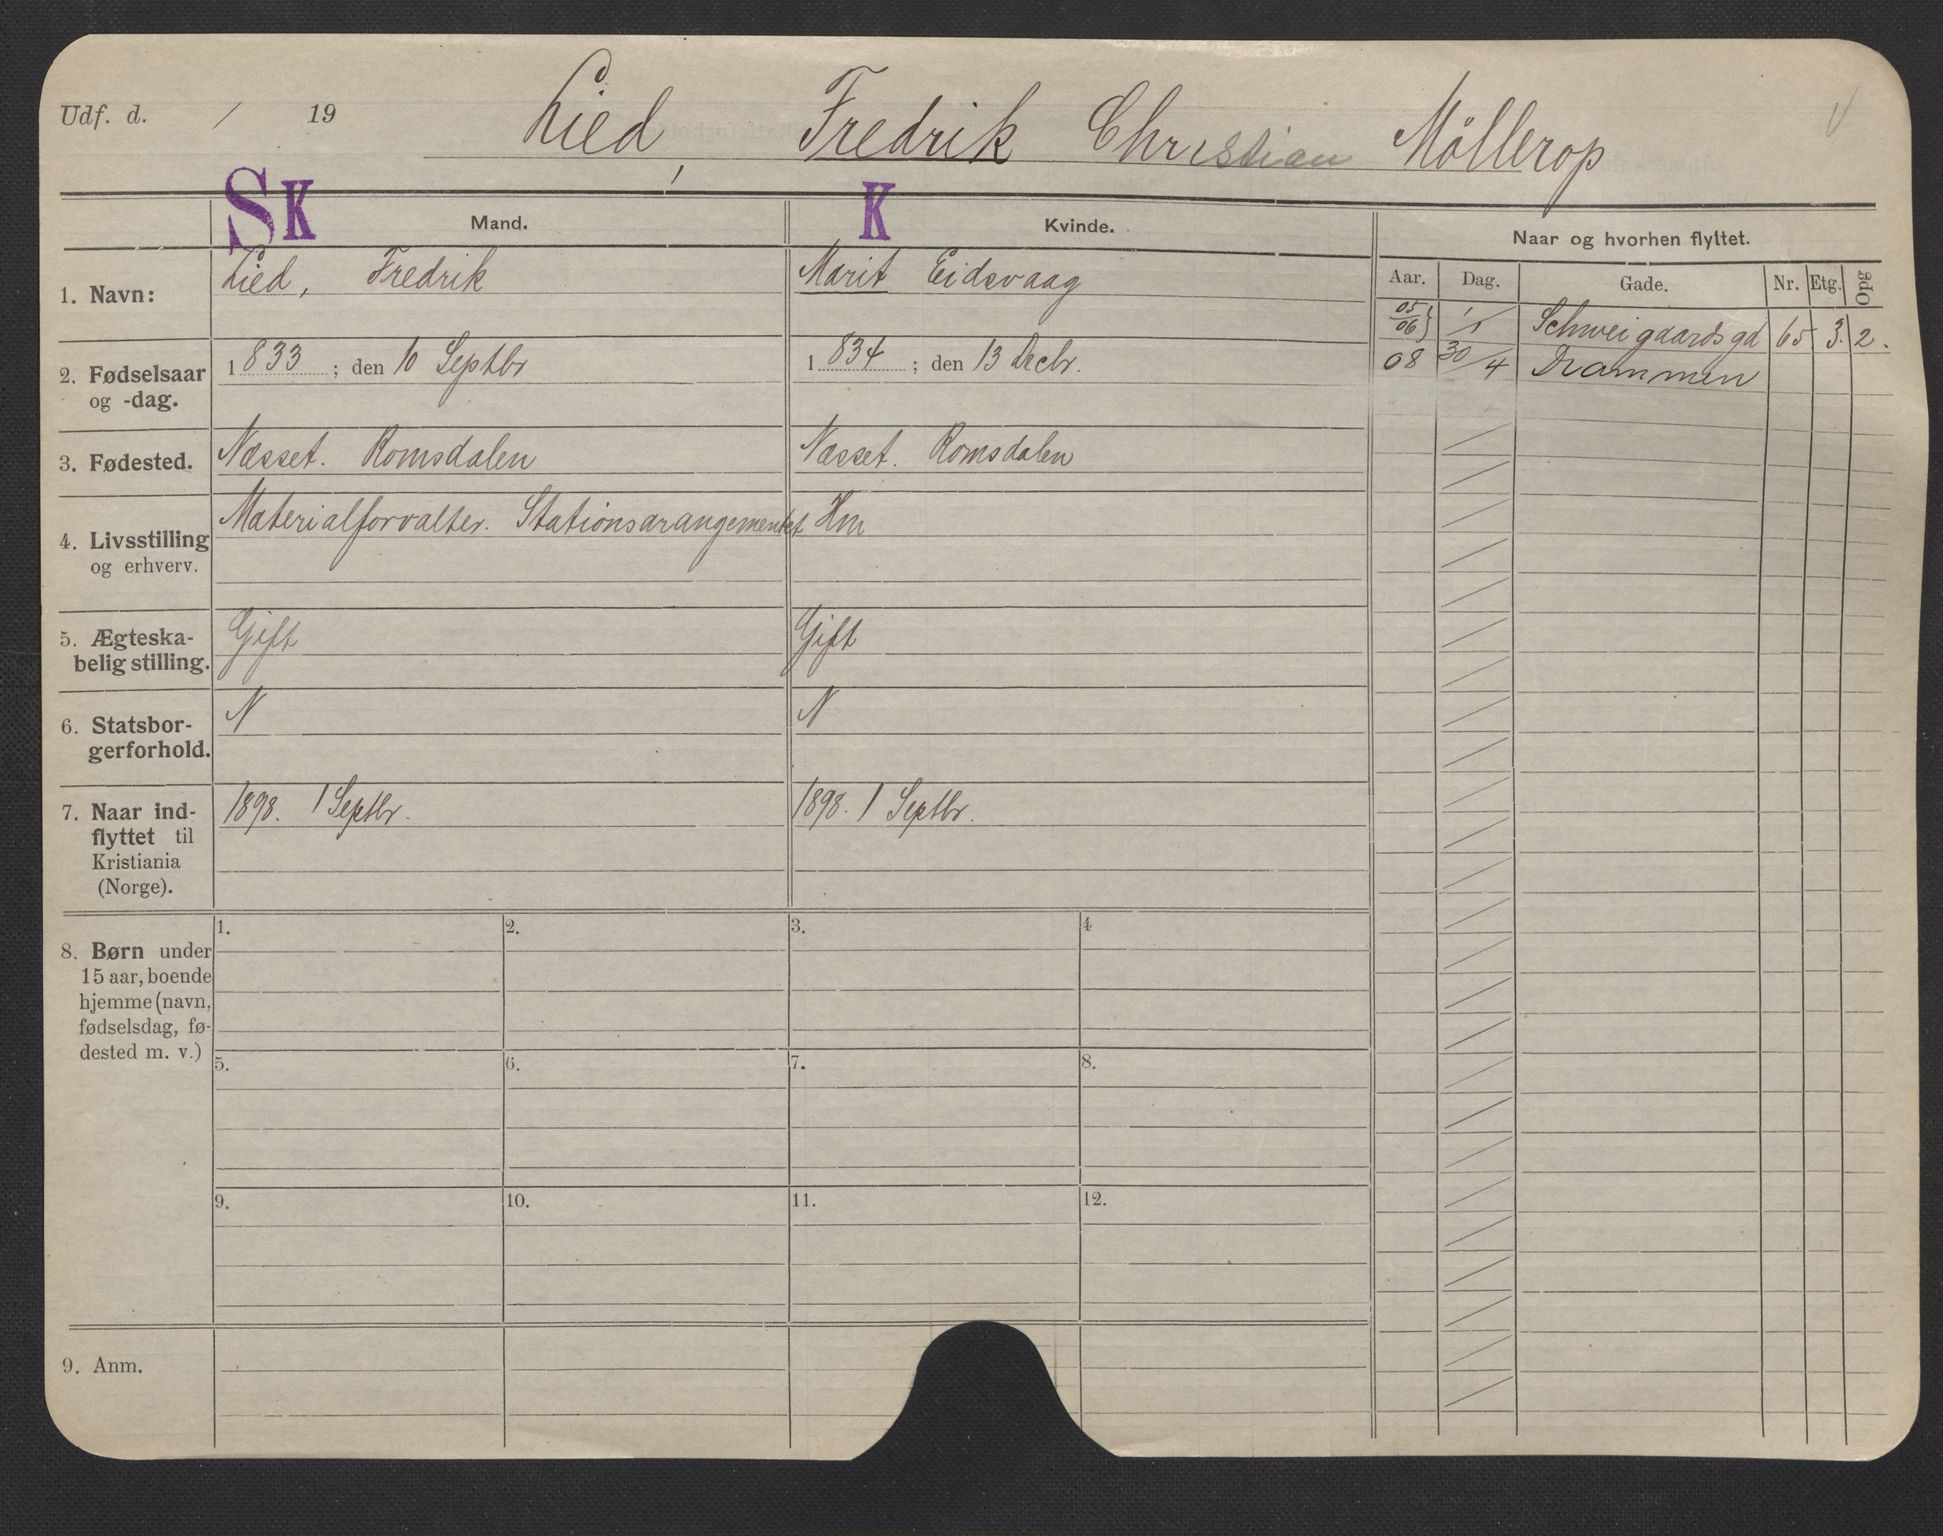 Udf. d. / 19 Lied, Fredrik Christian Möllerop
SK Mand. K Kvinde. Naar og hvorhen flyttet.
Aar. Dag. Gade. Nr. Etg. Opg
1. Navn: Lied, Fredrik Marit Eidsvaag
05/06} 1/1 Schweigaardsgd 65 3. 2.
08 30/4 Drammen
2. Fødselsaar 1833; den 10 Septbr 1834; den 13 Decbr.
og -dag.
3. Fødested. Næsset. Romsdalen Næsset. Romsdalen
Materialforvalter. Stationsarangementet Hm
4. Livsstilling
og erhverv.
5. Ægteska- Gift Gift
belig stilling.
6. Statsbor- N N
gerforhold.
7. Naar ind- 1898. 1 Septbr. 1898. 1 Septbr.
flyttet til
Kristiania
(Norge).
1. 2. 3. 4
8. Børn under
15 aar, boende
hjemme (navn,
fødselsdag, fø-
dested m. v.)
5. 6. 7. 8.
9. 10. 11. 12.
9. Anm.